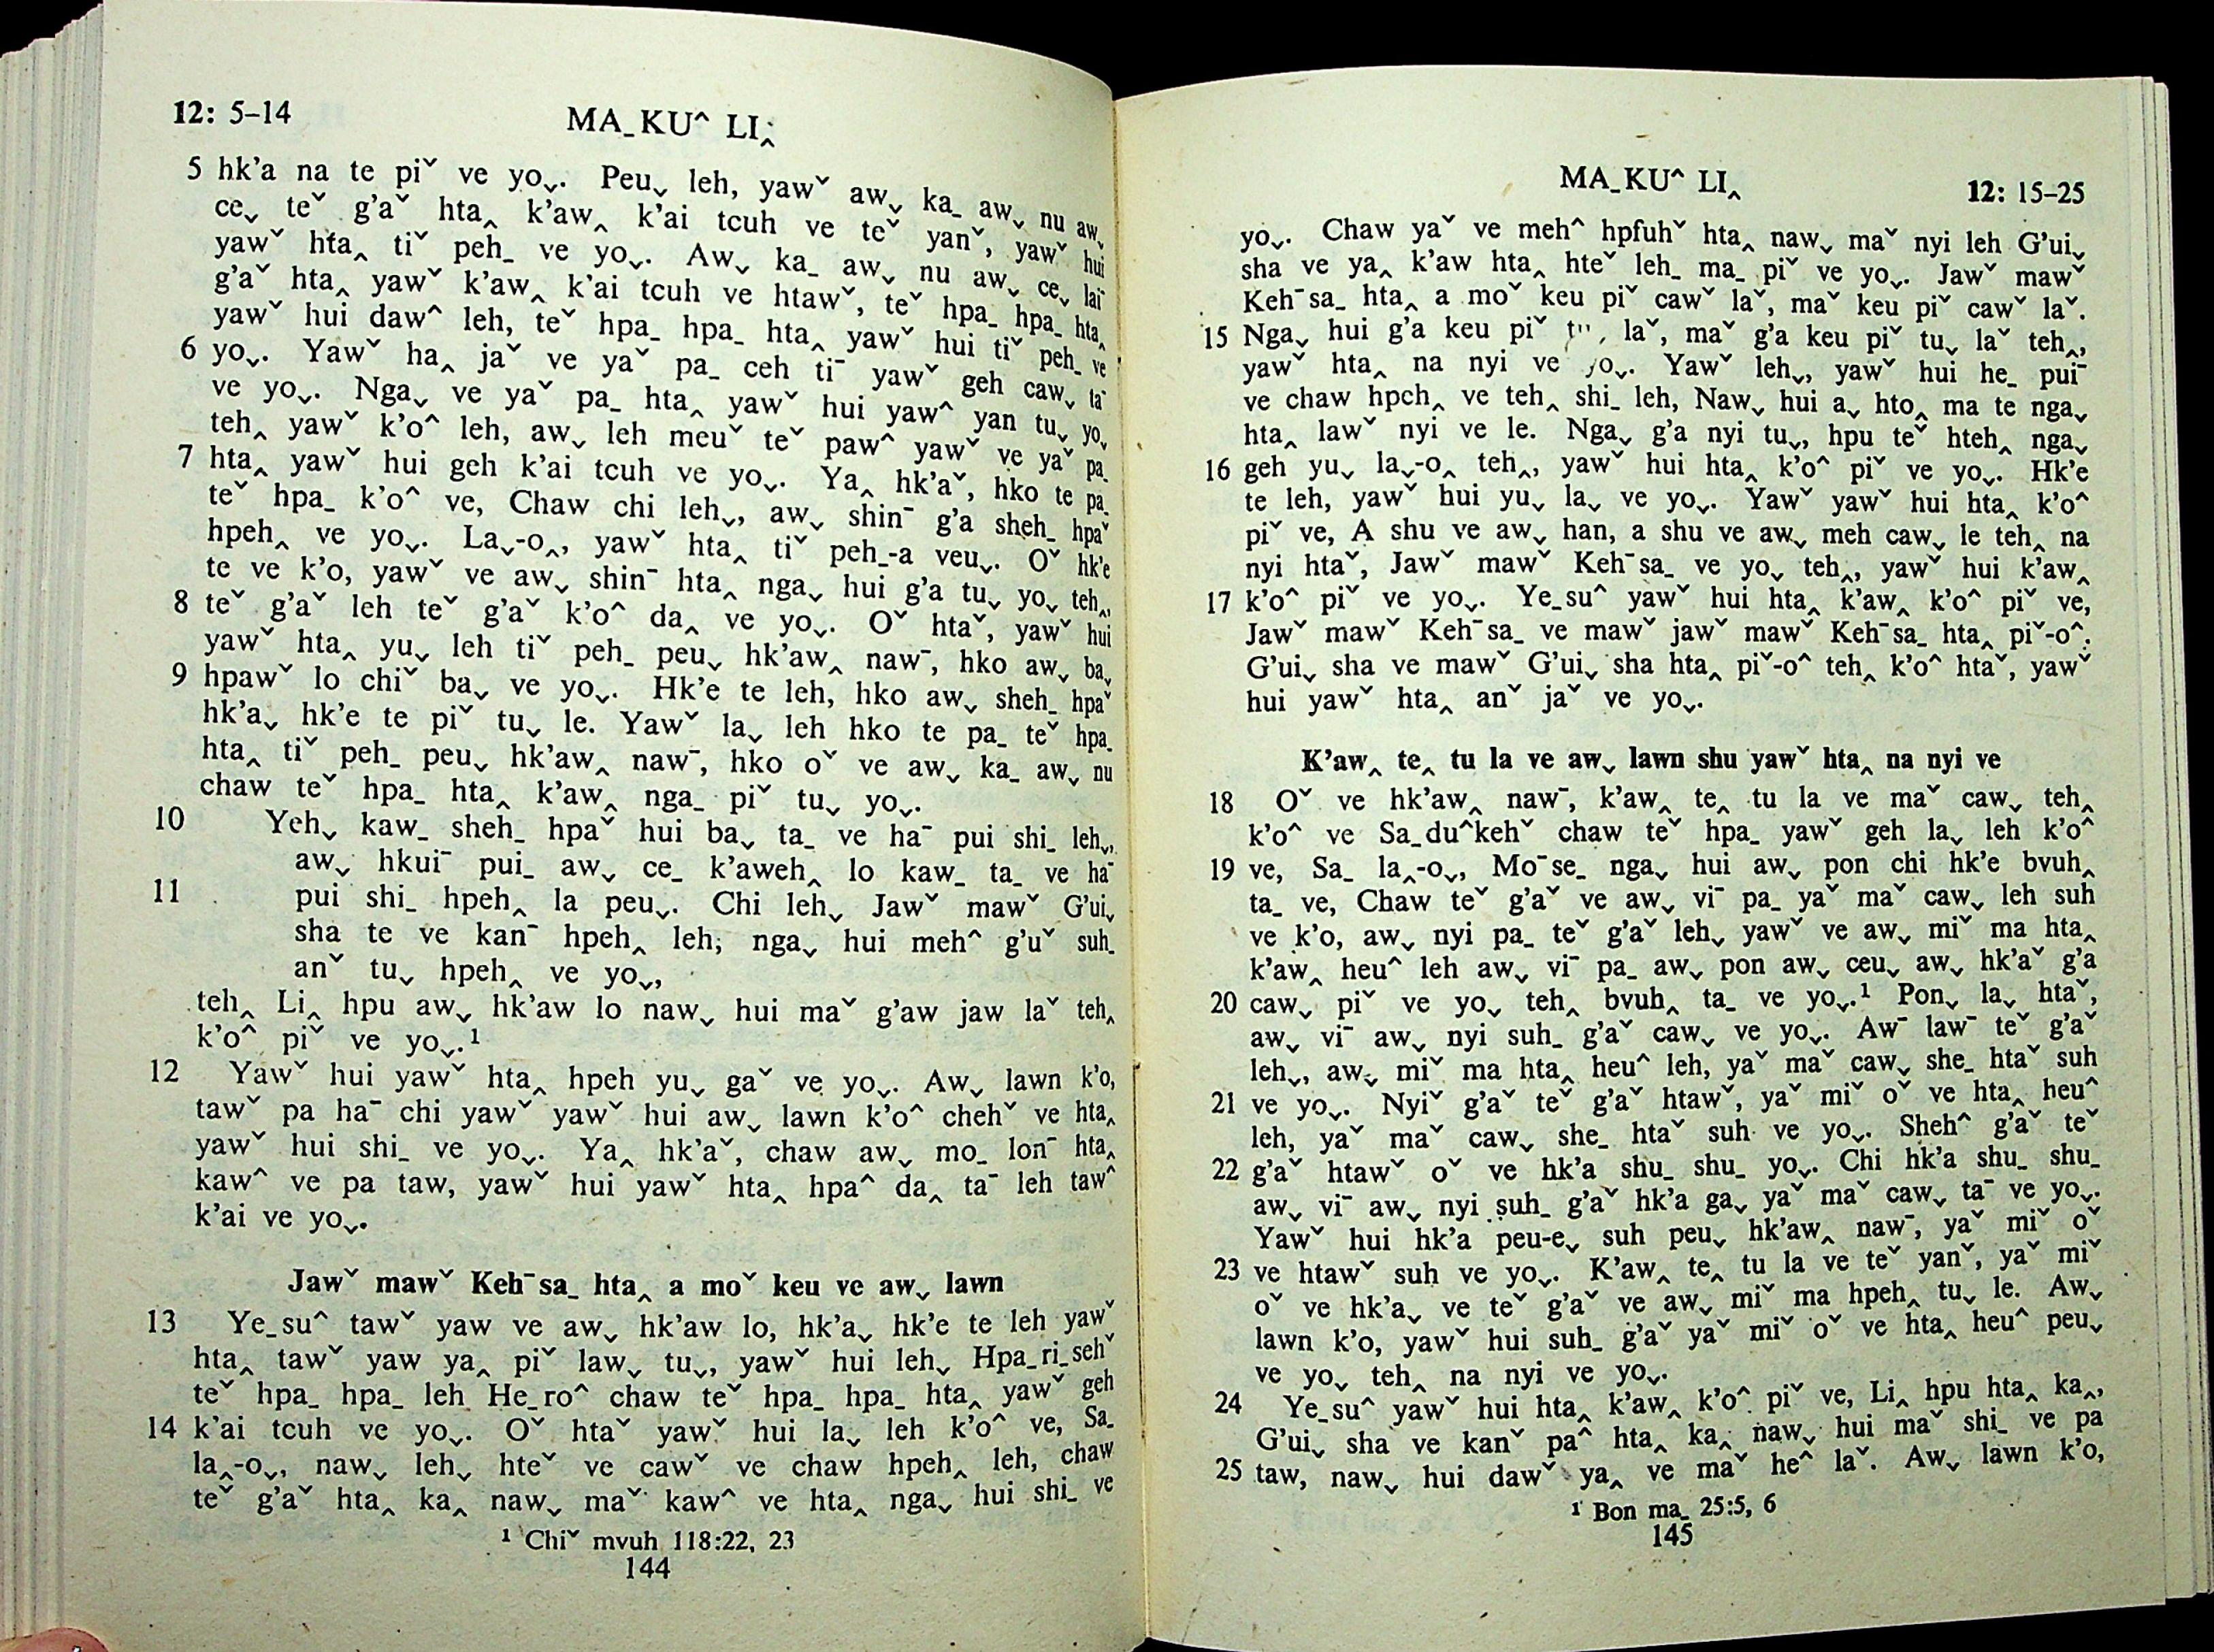 12: 5–14
MA_KU^ LI‸
5 hk’a na te piˇ ve yo⌄. Peu⌄ leh, yawˇ aw⌄ ka_ aw⌄ nu aw⌄
ce⌄ teˇ g’aˇ hta‸ k’aw‸ k’ai tcuh ve teˇ yanˇ, yawˇ hui
yawˇ hta‸ tiˇ peh_ ve yo⌄. Aw⌄ ka_ aw⌄ nu aw⌄ ce⌄ laiˉ
g’aˇ hta‸ yawˇ k’aw‸ k’ai tcuh ve htawˇ, teˇ hpa_ hpa_ hta‸
yawˇ hui daw^ leh, teˇ hpa_ hpa_ hta‸ yawˇ hui tiˇ peh_ ve
6 yo⌄. Yawˇ ha‸ jaˇ ve yaˇ pa_ ceh tiˉ yawˇ geh caw⌄ taˉ
ve yo⌄. Nga⌄ ve yaˇ pa_ hta‸ yawˇ hui yaw^ yan tu⌄ yo⌄
teh‸ yawˇ k’o^ leh, aw⌄ leh meuˇ teˇ paw^ yawˇ ve yaˇ pa_
7 hta‸ yawˇ hui geh k’ai tcuh ve yo⌄. Ya‸ hk’aˇ, hko te pa_
teˇ hpa_ k’o^ ve, Chaw chi leh⌄, aw⌄ shinˉ g’a sheh_ hpaˇ
hpeh‸ ve yo⌄. La⌄-o‸, yawˇ hta‸ tiˇ peh_-a veu⌄. Oˇ hk’e
te ve k’o, yawˇ ve aw⌄ shinˉ hta‸ nga⌄ hui g’a tu⌄ yo⌄ teh‸,
8 teˇ g’aˇ leh teˇ g’aˇ k’o^ da‸ ve yo⌄. Oˇ htaˇ, yawˇ hui
yawˇ hta‸ yu⌄ leh tiˇ peh_ peu⌄ hk’aw‸ nawˉ, hko aw⌄ ba⌄
9 hpawˇ lo chiˇ ba⌄ ve yo⌄. Hk’e te leh, hko aw⌄ sheh_ hpaˇ
hk’a⌄ hk’e te piˇ tu⌄ le. Yawˇ la⌄ leh hko te pa_ teˇ hpa_
hta‸ tiˇ peh_ peu⌄ hk’aw‸ nawˉ, hko oˇ ve aw⌄ ka_ aw⌄ nu
chaw teˇ hpa_ hta‸ k’aw‸ nga_ piˇ tu⌄ yo⌄.
10 Yeh⌄ kaw_ sheh_ hpaˇ hui ba⌄ ta_ ve haˉ pui shi_ leh⌄,
aw⌄ hkuiˉ pui_ aw⌄ ce_ k’aweh‸ lo kaw_ ta_ ve haˉ
11 pui shi_ hpeh‸ la peu⌄. Chi leh⌄ Jawˇ mawˇ G’ui⌄
sha te ve kanˉ hpeh‸ leh, nga⌄ hui meh^ g’uˇ suh_
anˇ tu⌄ hpeh‸ ve yo⌄,
teh‸ Li‸ hpu aw⌄ hk’aw lo naw⌄ hui maˇ g’aw jaw laˇ teh‸
k’o^ piˇ ve yo⌄.¹
12 Yawˇ hui yawˇ hta‸ hpeh yu⌄ gaˇ ve yo⌄. Aw⌄ lawn k’o,
tawˇ pa haˉ chi yawˇ yawˇ hui aw⌄ lawn k’o^ chehˇ ve hta‸
yawˇ hui shi_ ve yo⌄. Ya‸ hk’aˇ, chaw aw⌄ mo_ lonˉ hta‸
kaw^ ve pa taw, yawˇ hui yawˇ hta‸ hpa^ da‸ taˉ leh taw^
k’ai ve yo⌄.
Jawˇ mawˇ Kehˉsa_ hta‸ a moˇ keu ve aw⌄ lawn
13 Ye_su^ tawˇ yaw ve aw⌄ hk’aw lo, hk’a⌄ hk’e te leh yawˇ
hta‸ tawˇ yaw ya‸ piˇ law⌄ tu⌄, yawˇ hui leh⌄ Hpa_ri_sehˇ
teˇ hpa_ hpa_ leh He_ro^ chaw teˇ hpa_ hpa_ hta‸ yawˇ geh
14 k’ai tcuh ve yo⌄. Oˇ htaˇ yawˇ hui la⌄ leh k’o^ ve, Sa_
la‸-o⌄, naw⌄ leh⌄ hteˇ ve cawˇ ve chaw hpeh‸ leh, chaw
teˇ g’aˇ hta‸ ka‸ naw⌄ maˇ kaw^ ve hta‸ nga⌄ hui shi_ ve
¹ Chiˇ mvuh 118:22, 23
144
MA_KU^ LI‸
12: 15–25
yo⌄. Chaw yaˇ ve meh^ hpfuhˇ hta‸ naw⌄ maˇ nyi leh G’ui⌄
sha ve ya‸ k’aw hta‸ hteˇ leh_ ma_ piˇ ve yo⌄. Jawˇ mawˇ
Kehˉsa_ hta‸ a moˇ keu piˇ cawˇ laˇ, maˇ keu piˇ cawˇ laˇ.
15 Nga⌄ hui g’a keu piˇ laˇ, maˇ g’a keu piˇ tu⌄ laˇ teh‸,
yawˇ hta‸ na nyi ve yo⌄. Yawˇ leh⌄, yawˇ hui he_ puiˉ
ve chaw hpeh‸ ve teh‸ shi_ leh, Naw⌄ hui a⌄ hto‸ ma te nga⌄
hta‸ lawˇ nyi ve le. Nga⌄ g’a nyi tu⌄, hpu teˇ hteh‸ nga⌄
16 geh yu⌄ la⌄-o‸ teh‸, yawˇ hui hta‸ k’o^ piˇ ve yo⌄. Hk’e
te leh, yawˇ hui yu⌄ la⌄ ve yo⌄. Yawˇ yawˇ hui hta‸ k’o^
piˇ ve, A shu ve aw⌄ han, a shu ve aw⌄ meh caw⌄ le teh‸ na
nyi htaˇ, Jawˇ mawˇ Kehˉsa_ ve yo⌄ teh‸, yawˇ hui k’aw‸
17 k’o^ piˇ ve yo⌄. Ye_su^ yawˇ hui hta‸ k’aw‸ k’o^ piˇ ve,
Jawˇ mawˇ Kehˉsa_ ve mawˇ jawˇ mawˇ Kehˉsa_ hta‸ piˇ-o^.
G’ui⌄ sha ve mawˇ G’ui⌄ sha hta‸ piˇ-o^ teh‸ k’o^ htaˇ, yawˇ
hui yawˇ hta‸ anˇ jaˇ ve yo⌄.
K’aw‸ te‸ tu la ve aw⌄ lawn shu yawˇ hta‸ na nyi ve
18 Oˇ ve hk’aw‸ nawˉ, k’aw‸ te‸ tu la ve maˇ caw⌄ teh‸
k’o^ ve Sa_du^kehˇ chaw teˇ hpa_ yawˇ geh la⌄ leh k’o^
19 ve, Sa_ la‸-o⌄, Moˉse_ nga⌄ hui aw⌄ pon chi hk’e bvuh‸
ta_ ve, Chaw teˇ g’aˇ ve aw⌄ viˉ pa_ yaˇ maˇ caw⌄ leh suh
ve k’o, aw⌄ nyi pa_ teˇ g’aˇ leh⌄ yawˇ ve aw⌄ miˇ ma hta‸
k’aw‸ heu^ leh aw⌄ viˉ pa_ aw⌄ pon aw⌄ ceu⌄ aw⌄ hk’aˇ g’a
20 caw⌄ piˇ ve yo⌄ teh‸ bvuh‸ ta_ ve yo⌄.¹ Pon⌄ la⌄ htaˇ,
aw⌄ viˉ aw⌄ nyi suh_ g’aˇ caw⌄ ve yo⌄. Awˉ lawˉ teˇ g’aˇ
leh⌄, aw⌄ miˇ ma hta‸ heu^ leh, yaˇ maˇ caw⌄ she_ htaˇ suh
21 ve yo⌄. Nyiˇ g’aˇ teˇ g’aˇ htawˇ, yaˇ miˇ oˇ ve hta‸ heu^
leh, yaˇ maˇ caw⌄ she_ htaˇ suh ve yo⌄. Sheh^ g’aˇ teˇ
22 g’aˇ htawˇ oˇ ve hk’a shu_ shu_ yo⌄. Chi hk’a shu_ shu_
aw⌄ viˉ aw⌄ nyi suh_ g’aˇ hk’a ga⌄ yaˇ maˇ caw⌄ taˉ ve yo⌄.
Yawˇ hui hk’a peu-e⌄ suh peu⌄ hk’aw‸ nawˉ, yaˇ miˇ oˇ
23 ve htawˇ suh ve yo⌄. K’aw‸ te‸ tu la ve teˇ yanˇ, yaˇ miˇ
oˇ ve hk’a⌄ ve teˇ g’aˇ ve aw⌄ miˇ ma hpeh‸ tu⌄ le. Aw⌄
lawn k’o, yawˇ hui suh_ g’aˇ yaˇ miˇ oˇ ve hta‸ heu^ peu⌄
ve yo⌄ teh‸ na nyi ve yo⌄.
24 Ye_su^ yawˇ hui hta‸ k’aw‸ k’o^ piˇ ve, Li‸ hpu hta‸ ka‸,
G’ui⌄ sha ve kanˇ pa^ hta‸ ka‸ naw⌄ hui maˇ shi_ ve pa
25 taw, naw⌄ hui dawˇ ya‸ ve maˇ he^ laˇ. Aw⌄ lawn k’o,
¹ Bon ma_ 25:5, 6
145